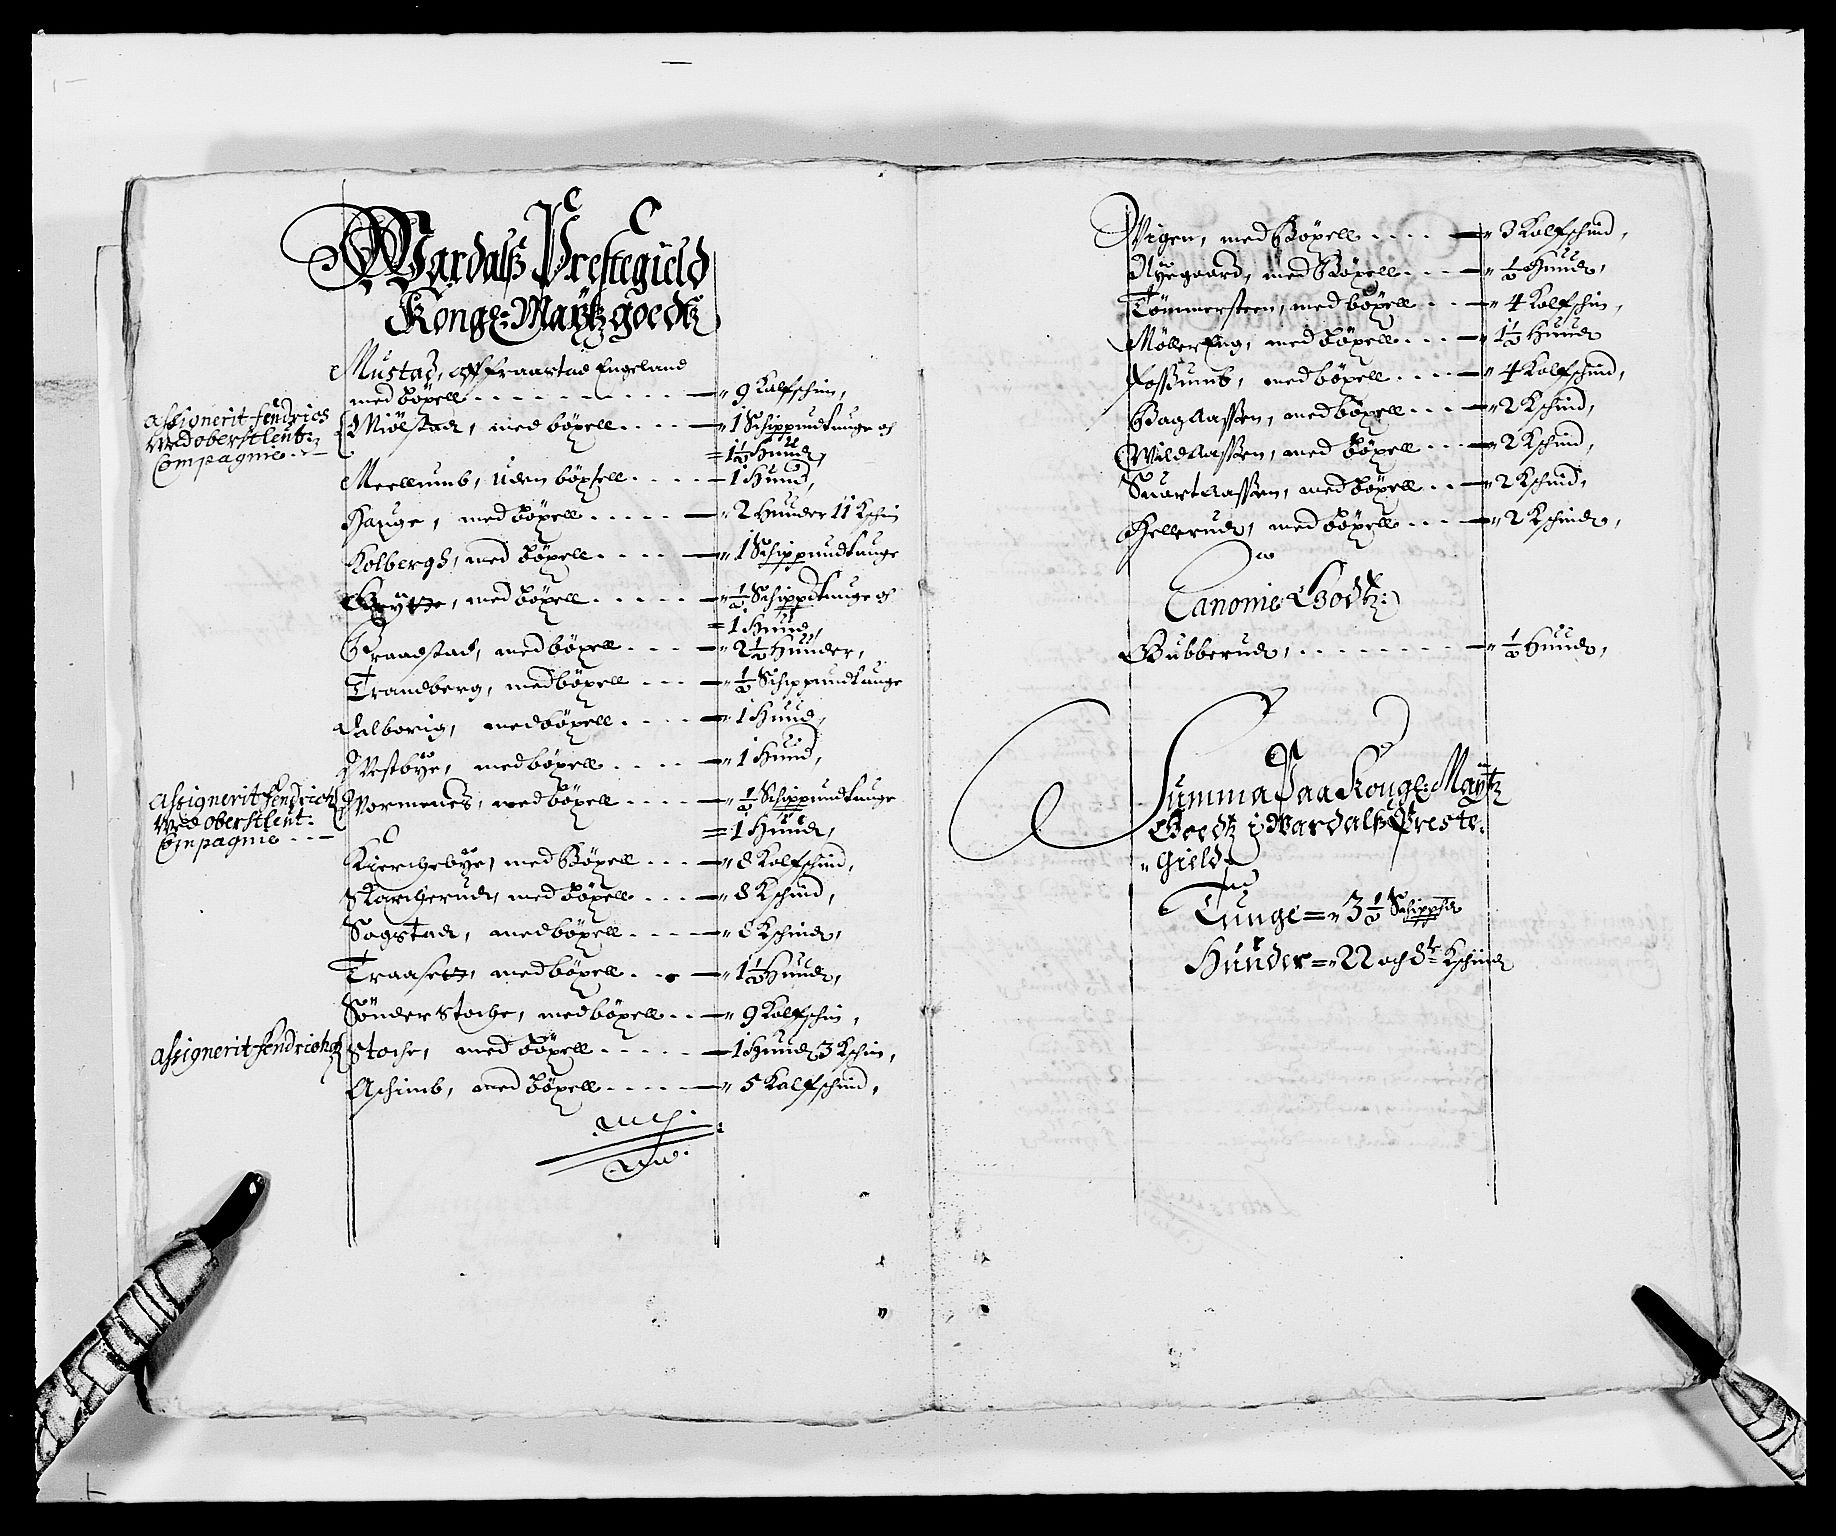 Wardalß Prestegield
Kongl: Maÿtz goedtz
Mustad, aff Fraastad Engeland
med böxell - - - - - 9 Kalfschin,
Assignerit fendrich
Wed oberstleut:
Compagnie - -
Miölstad, med böxell - - - 1 Schippundt unge och
= 1½ Hund,
Meellumb, uden böxsell - - - 1 Hund,
Hauge, med böxell - - - 2 Hunder 11 Kschin
Kolbergh, med böxell - - - 1 Schippundtunge
med böxell - - - ½ Schippdtunge och
= 1 Hund,
Braadstad, med böxell - - - 2½ Hunder,
Trandberg, med böxell - - - ½ Schippundtunge
Falborig, med böxell - - - 1 Hund,
Westbÿe, med böxell - - - 1 Hund,
Assignerit fendrich
Wed oberstleut:
Compagnie - -
Wormenes, med böxell - - - ½ Schippundtunge
= 1 Hund,
Kierchebÿe, med Böxell - - - 8 Kalfschind,
Starcherud, med böxell - - - 8 Kschind,
Sogstad, med böxell - - - 8 Kschind,
Traasett, med böxell - - - 1½ Hund,
Sönder Stoche, med böxell - - - 9 Kalfschin,
Assignerit fendrich
Stoche, med böxell - - - 1 Hund 3 Kschin,
Aschimb, med böxell - - - 5 Kalfschind,
Wigen, med Böxell - - - 3 Kalfschind,
Nÿegaard, med Böxell - - - ½ Hund,
Tömmersteen, med böxell - - - 4 Kalfschin,
Möller Eng, med böxell - - - 1½ Hund
Fossumb, med böxell - - - 4 Kalfschind,
Bagaassen, med böxell - - - 2 Kschind,
Wildaassen, med böxell - - - 2 Kschind,
Suartaassen, med böxell - - - 2 Kschind,
Hellerud, med böxell - - - 2 Kschind,
Canonie Godtz:
Gubberud, - - - ½ Hund,
Summa Paa Kongl: Maÿtz
Goedtz i Wardalß Preste-
Gield
Tunge = 3½ Schippd
Hunder = 22 och 8te Kschind